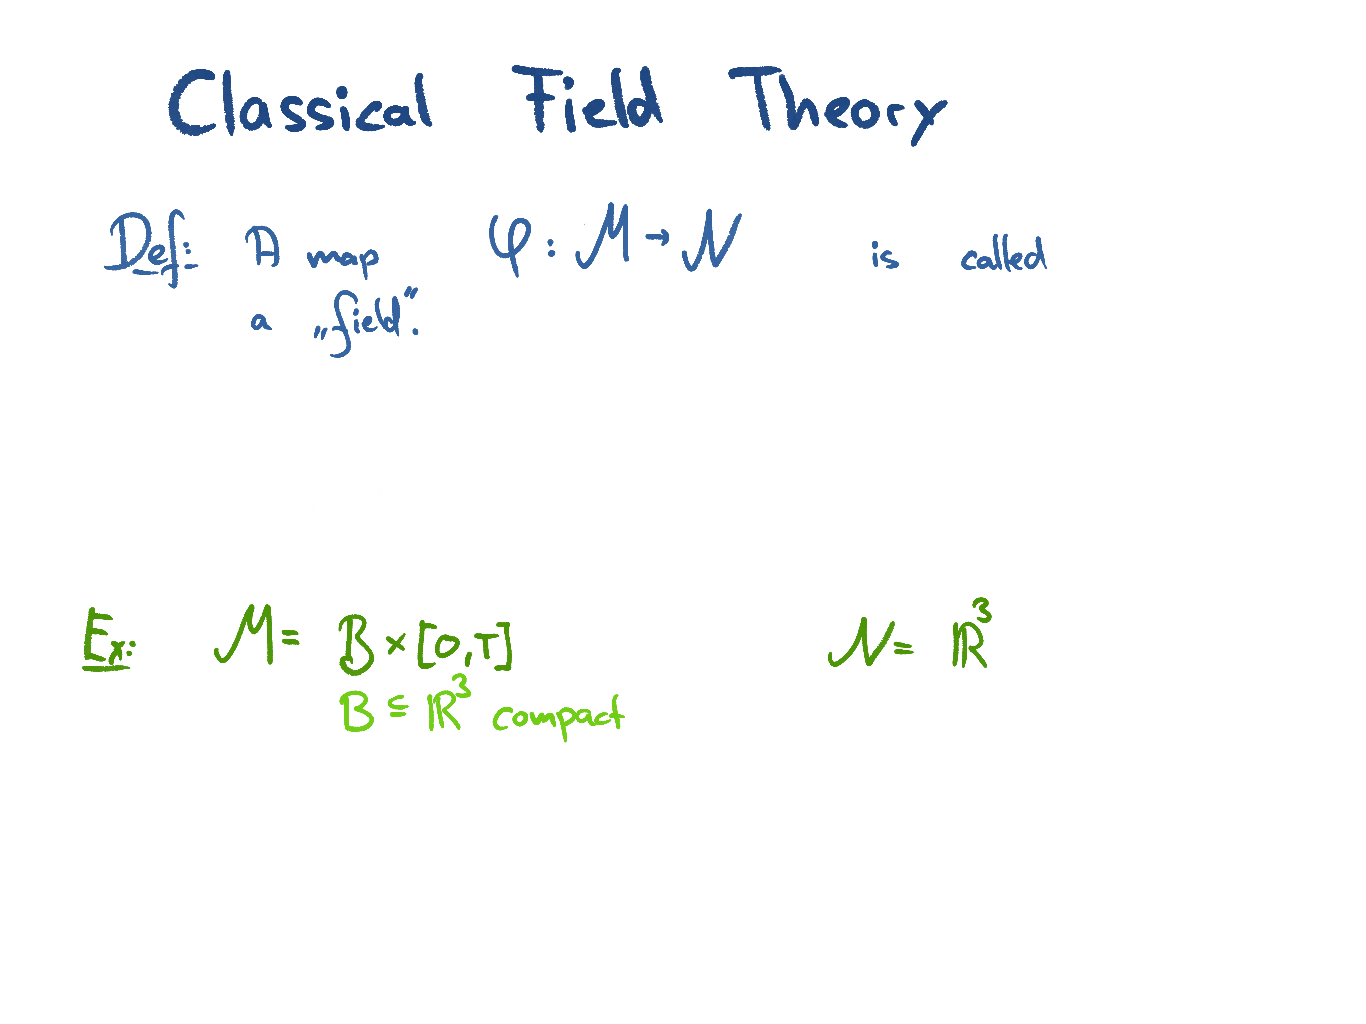 Classical Field Theory
Def: A map φ : M → N is called
a „field“.
Ex: M = B × [0,T] N = ℝ³
B ⊆ ℝ³ compact